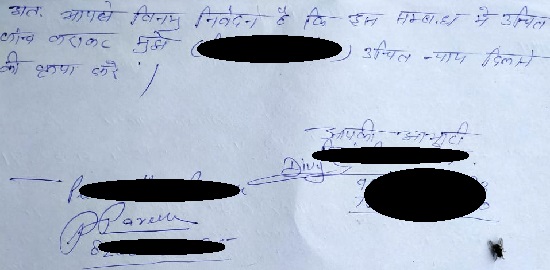 अतः आपसे विनम्र निवेदन है कि इस सम्बन्ध में उचित
जांच कराकर मुझे ( ) उचित न्याय दिलाने
की कृपा करें ।
आपकी आभारी